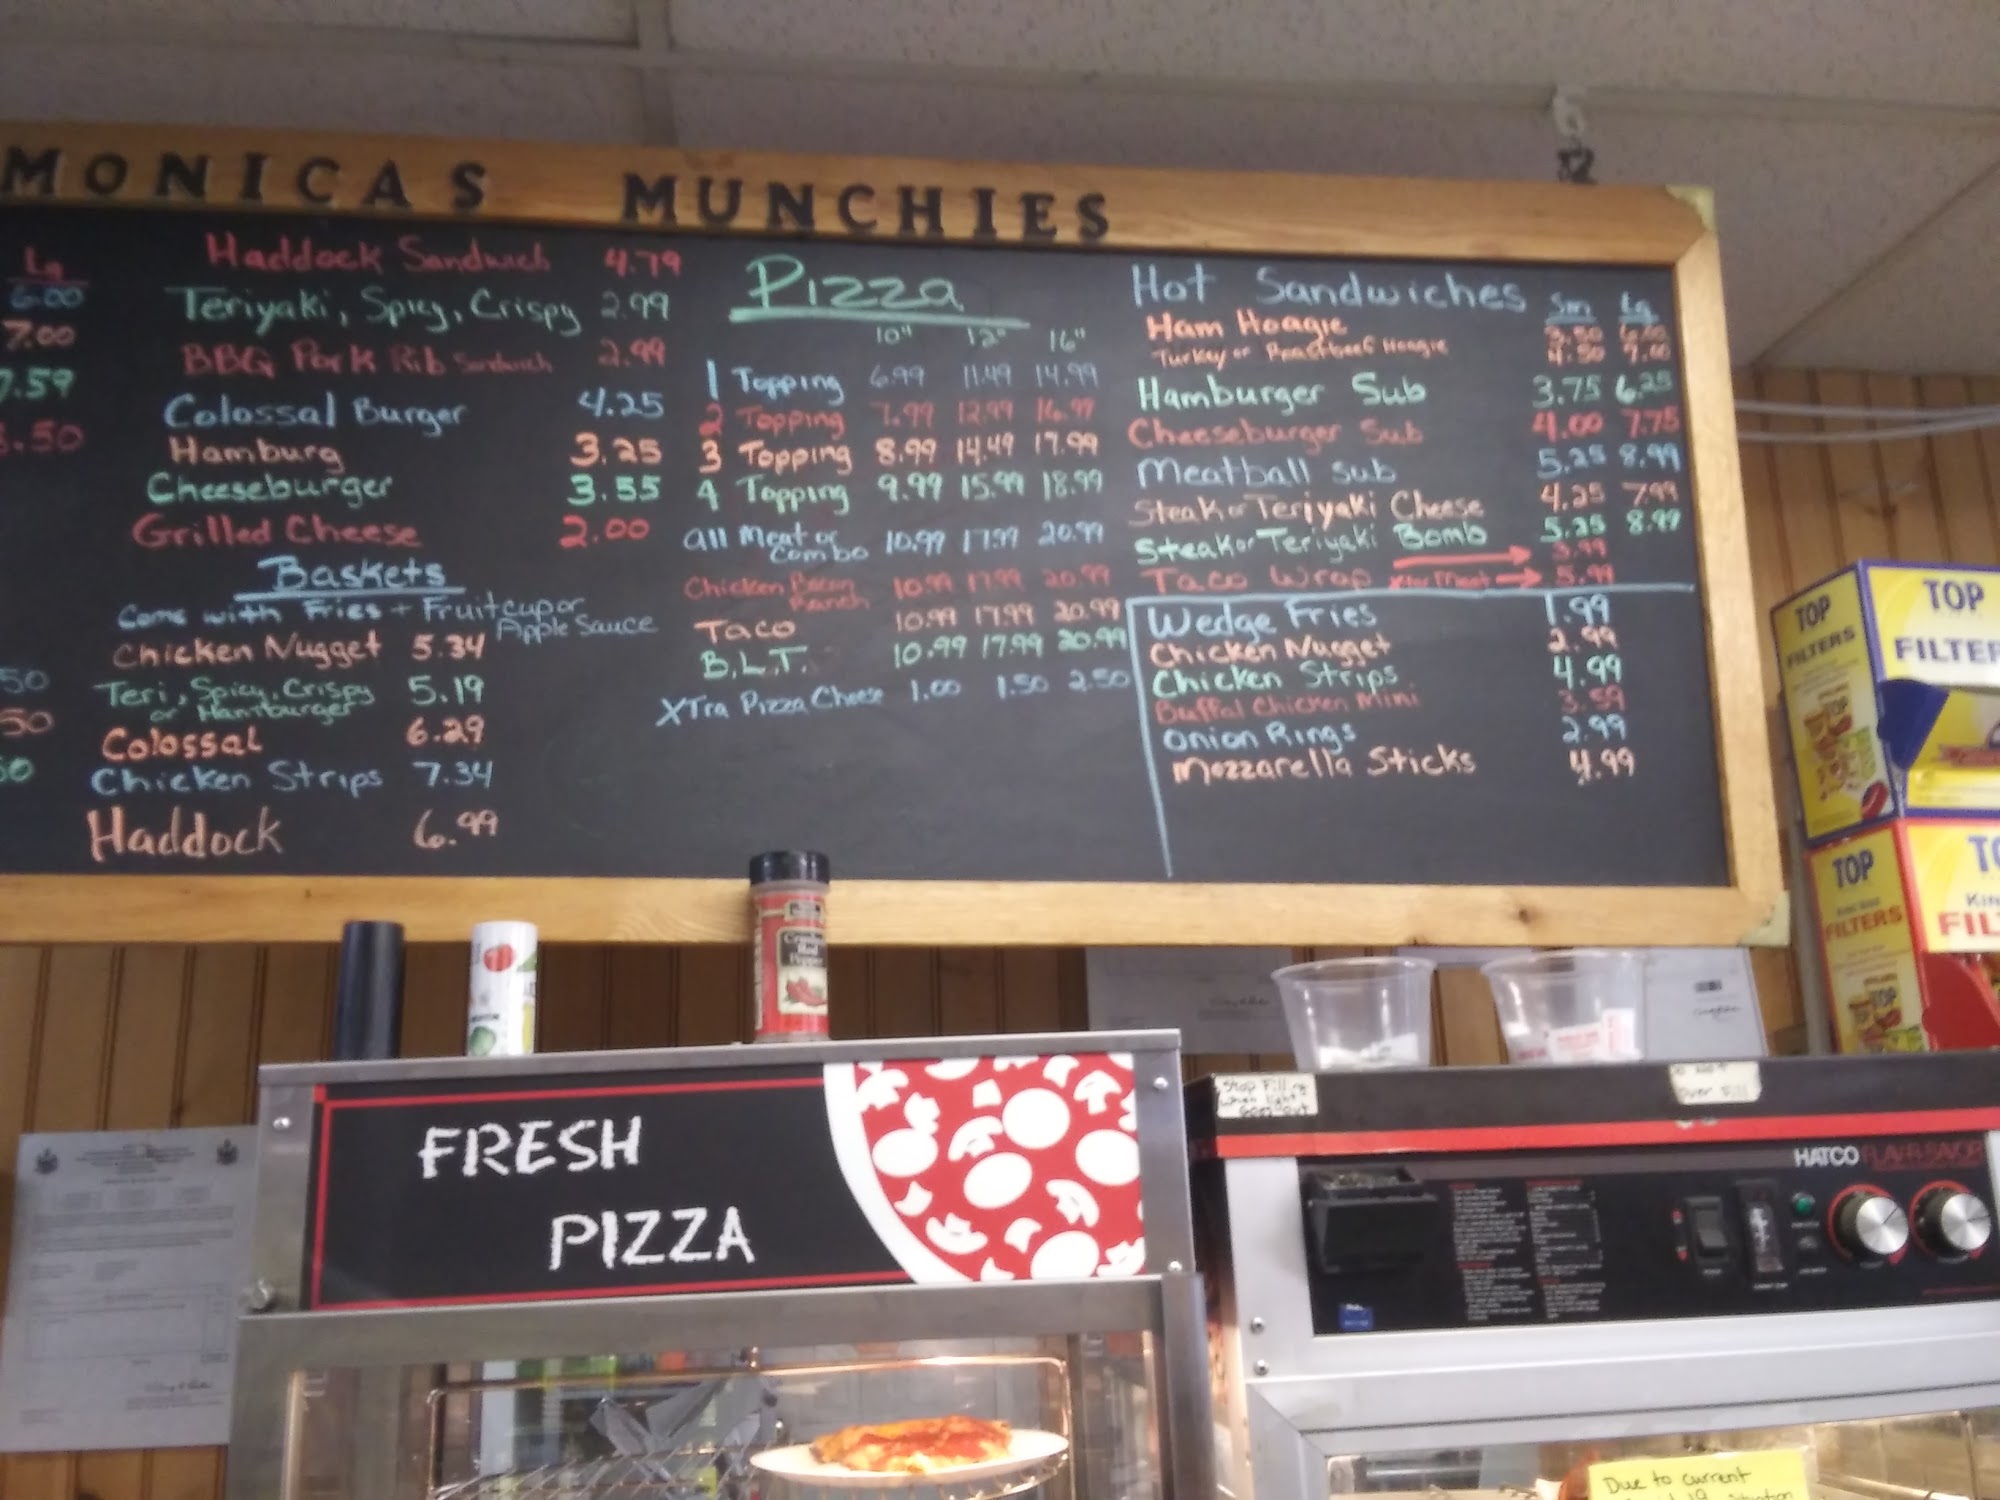 MONICAS MUNCHIES
Lg
6.00
7.00
7.59
.50
50
50
50
Haddock Sandwich 4.79
Teriyaki, Spicy, Crispy 2.99
BBQ Pork Rib Sandwich 2.99
Colossal Burger 4.25
Hamburg 3.25
Cheeseburger 3.55
Grilled Cheese 2.00
Baskets
Come with Fries + Fruitcup or
Apple Sauce
Chicken Nugget 5.34
Teri, Spicy, Crispy 5.19
or Hamburger
Colossal 6.29
Chicken Strips 7.34
Haddock 6.99
Pizza
10" 12" 16"
1 Topping 6.99 11.49 14.99
2 Topping 7.99 12.99 16.99
3 Topping 8.99 14.49 17.99
4 Topping 9.99 15.99 18.99
all Meat or
Combo 10.99 17.99 20.99
Chicken Bacon
Ranch 10.99 17.99 20.99
Taco 10.99 17.99 20.99
B.L.T. 10.99 17.99 20.99
XTra Pizza Cheese 1.00 1.50 2.50
Hot Sandwiches Sm Lg
Ham Hoagie 3.50 6.00
Turkey or Roastbeef Hoagie 4.50 7.00
Hamburger Sub 3.75 6.25
Cheeseburger Sub 4.00 7.75
Meatball Sub 5.25 8.99
Steak or Teriyaki Cheese 4.25 7.99
Steak or Teriyaki Bomb 5.25 8.99
3.99
Taco Wrap xtra meat 5.99
Wedge Fries 1.99
Chicken Nugget 2.99
Chicken Strips 4.99
Buffal Chicken Mini 3.59
Onion Rings 2.99
Mozzarella Sticks 4.99
TOP
FILTERS
TOP
FILTER
TOP
FILTERS
TOP
Crushed
Red
Pepper
FRESH
PIZZA
Stop Filling
when light
goes out
Do not
over fill
HATCO FLAV-R-SAVOR
Due to current